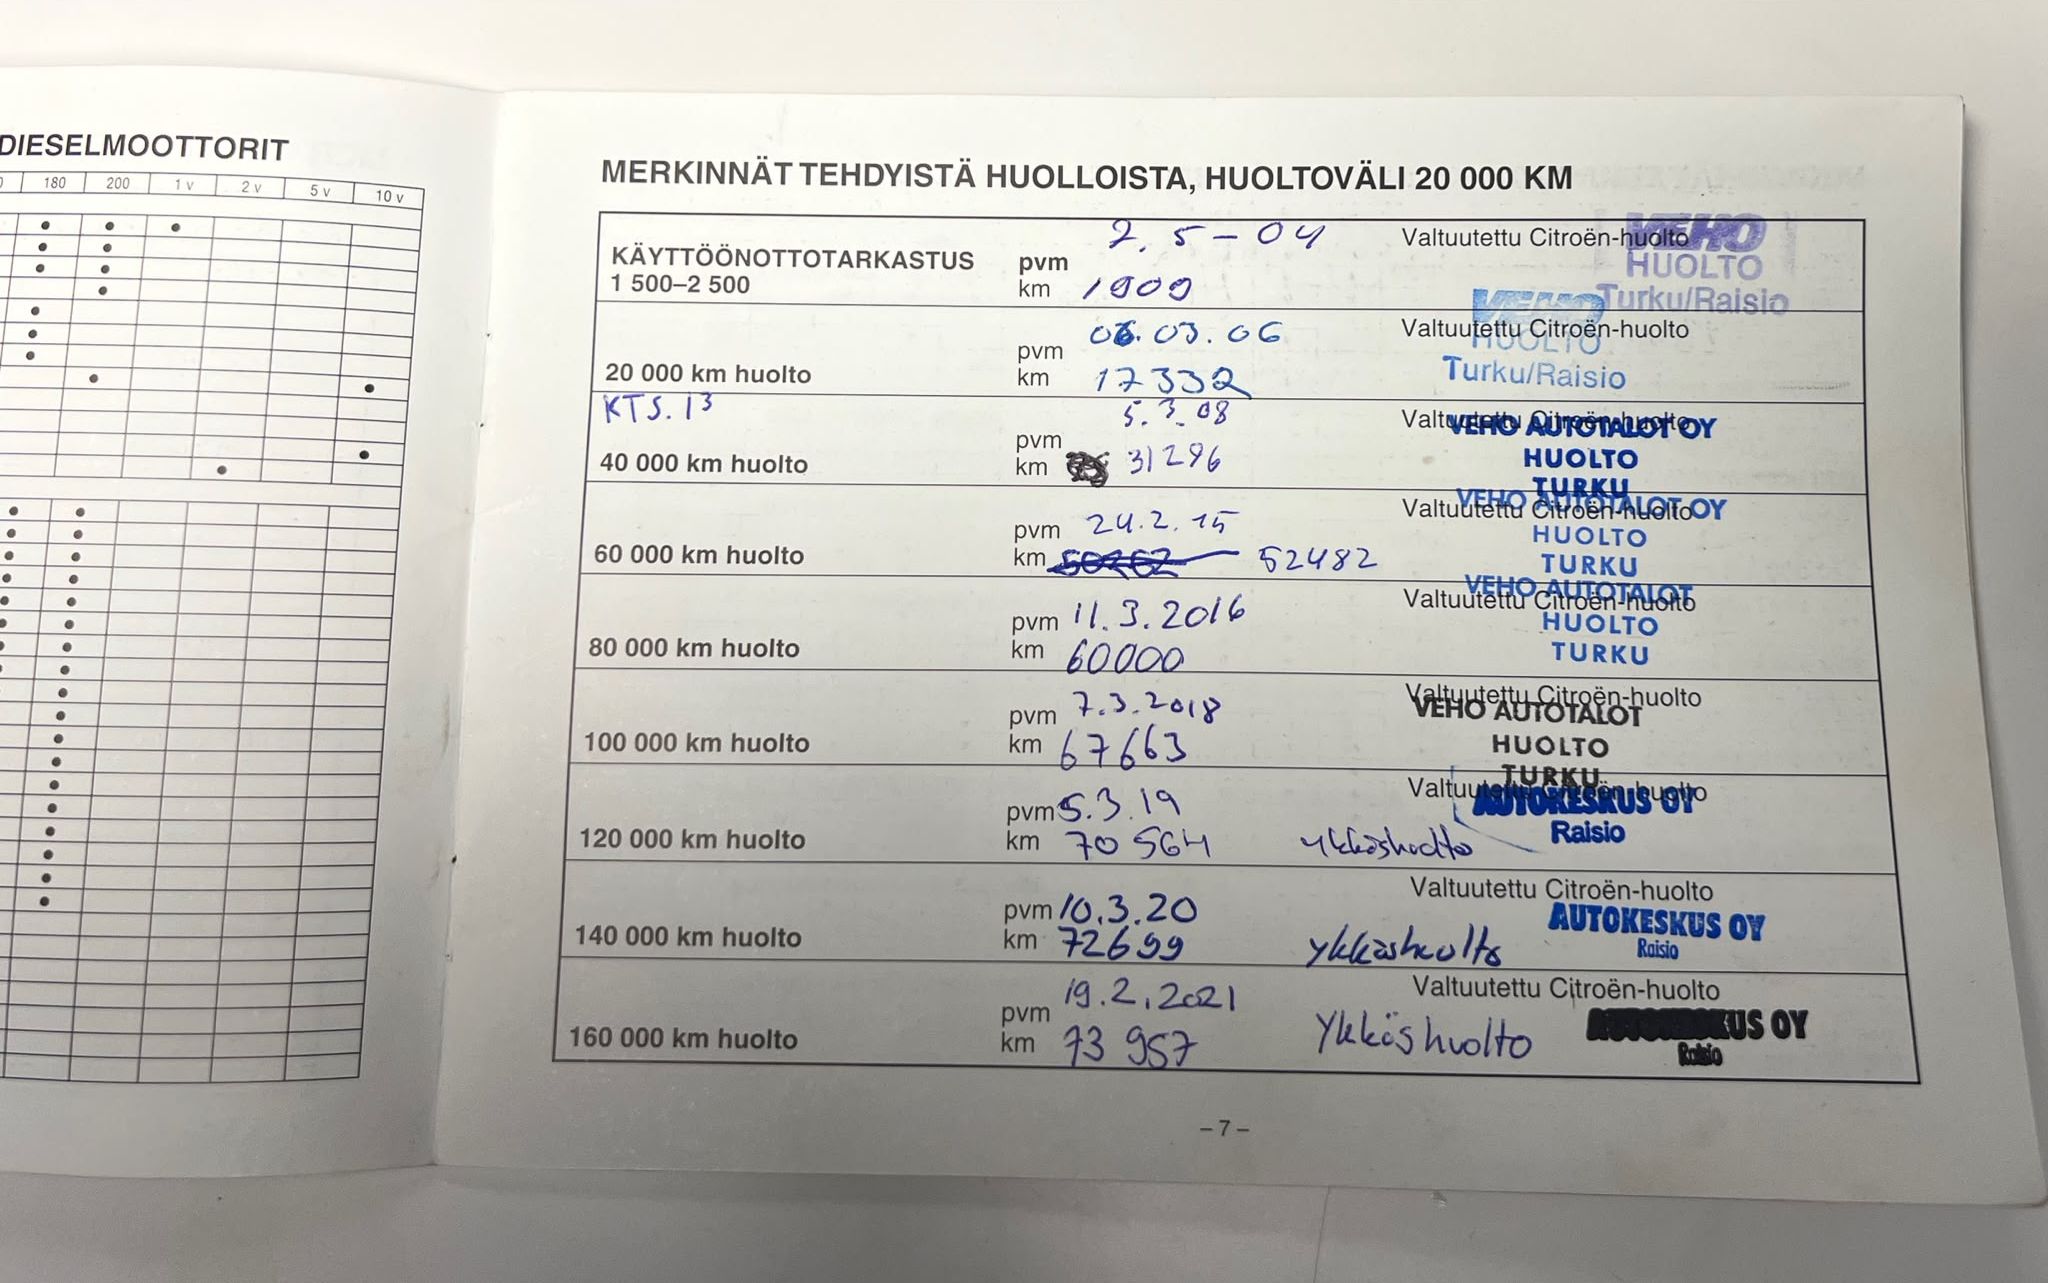 DIESELMOOTTORIT
180 200 1 v 2 v 5 v 10 v
MERKINNÄT TEHDYISTÄ HUOLLOISTA, HUOLTOVÄLI 20 000 KM
KÄYTTÖÖNOTTOTARKASTUS
1 500–2 500
pvm 2.5-04
km 1909
Valtuutettu Citroën-huolto
VEHO
HUOLTO
Turku/Raisio
20 000 km huolto
pvm 06.03.06
km 17332
Valtuutettu Citroën-huolto
VEHO
HUOLTO
Turku/Raisio
KTS. 13
40 000 km huolto
pvm 5.3.08
km 31296
Valtuutettu Citroën-huolto
VEHO AUTOTALOT OY
HUOLTO
TURKU
60 000 km huolto
pvm 24.2.15
km 52482
Valtuutettu Citroën-huolto
VEHO AUTOTALOT OY
HUOLTO
TURKU
80 000 km huolto
pvm 11.3.2016
km 60000
Valtuutettu Citroën-huolto
VEHO AUTOTALOT
HUOLTO
TURKU
100 000 km huolto
pvm 7.3.2018
km 67663
Valtuutettu Citroën-huolto
VEHO AUTOTALOT
HUOLTO
TURKU
120 000 km huolto
pvm 5.3.19
km 70 564 ykköshuolto
Valtuutettu Citroën-huolto
AUTOKESKUS OY
Raisio
140 000 km huolto
pvm 10.3.20
km 72699 ykköshuolto
Valtuutettu Citroën-huolto
AUTOKESKUS OY
Raisio
160 000 km huolto
pvm 19.2.2021
km 73 957 Ykköshuolto
Valtuutettu Citroën-huolto
AUTOKESKUS OY
Raisio
– 7 –